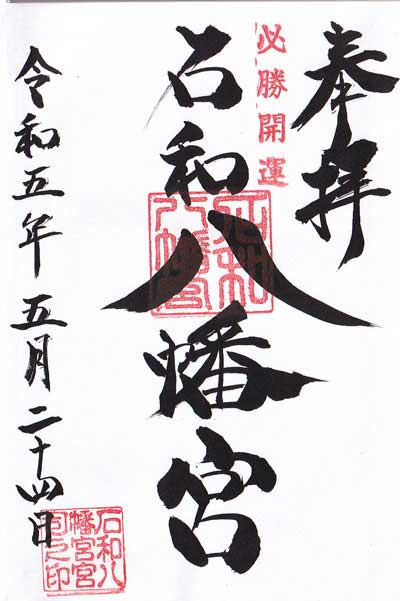 奉拝
必勝開運
石和八幡宮
石和八幡宮
令和五年五月二十四日
石和八
幡宮宮
司之印